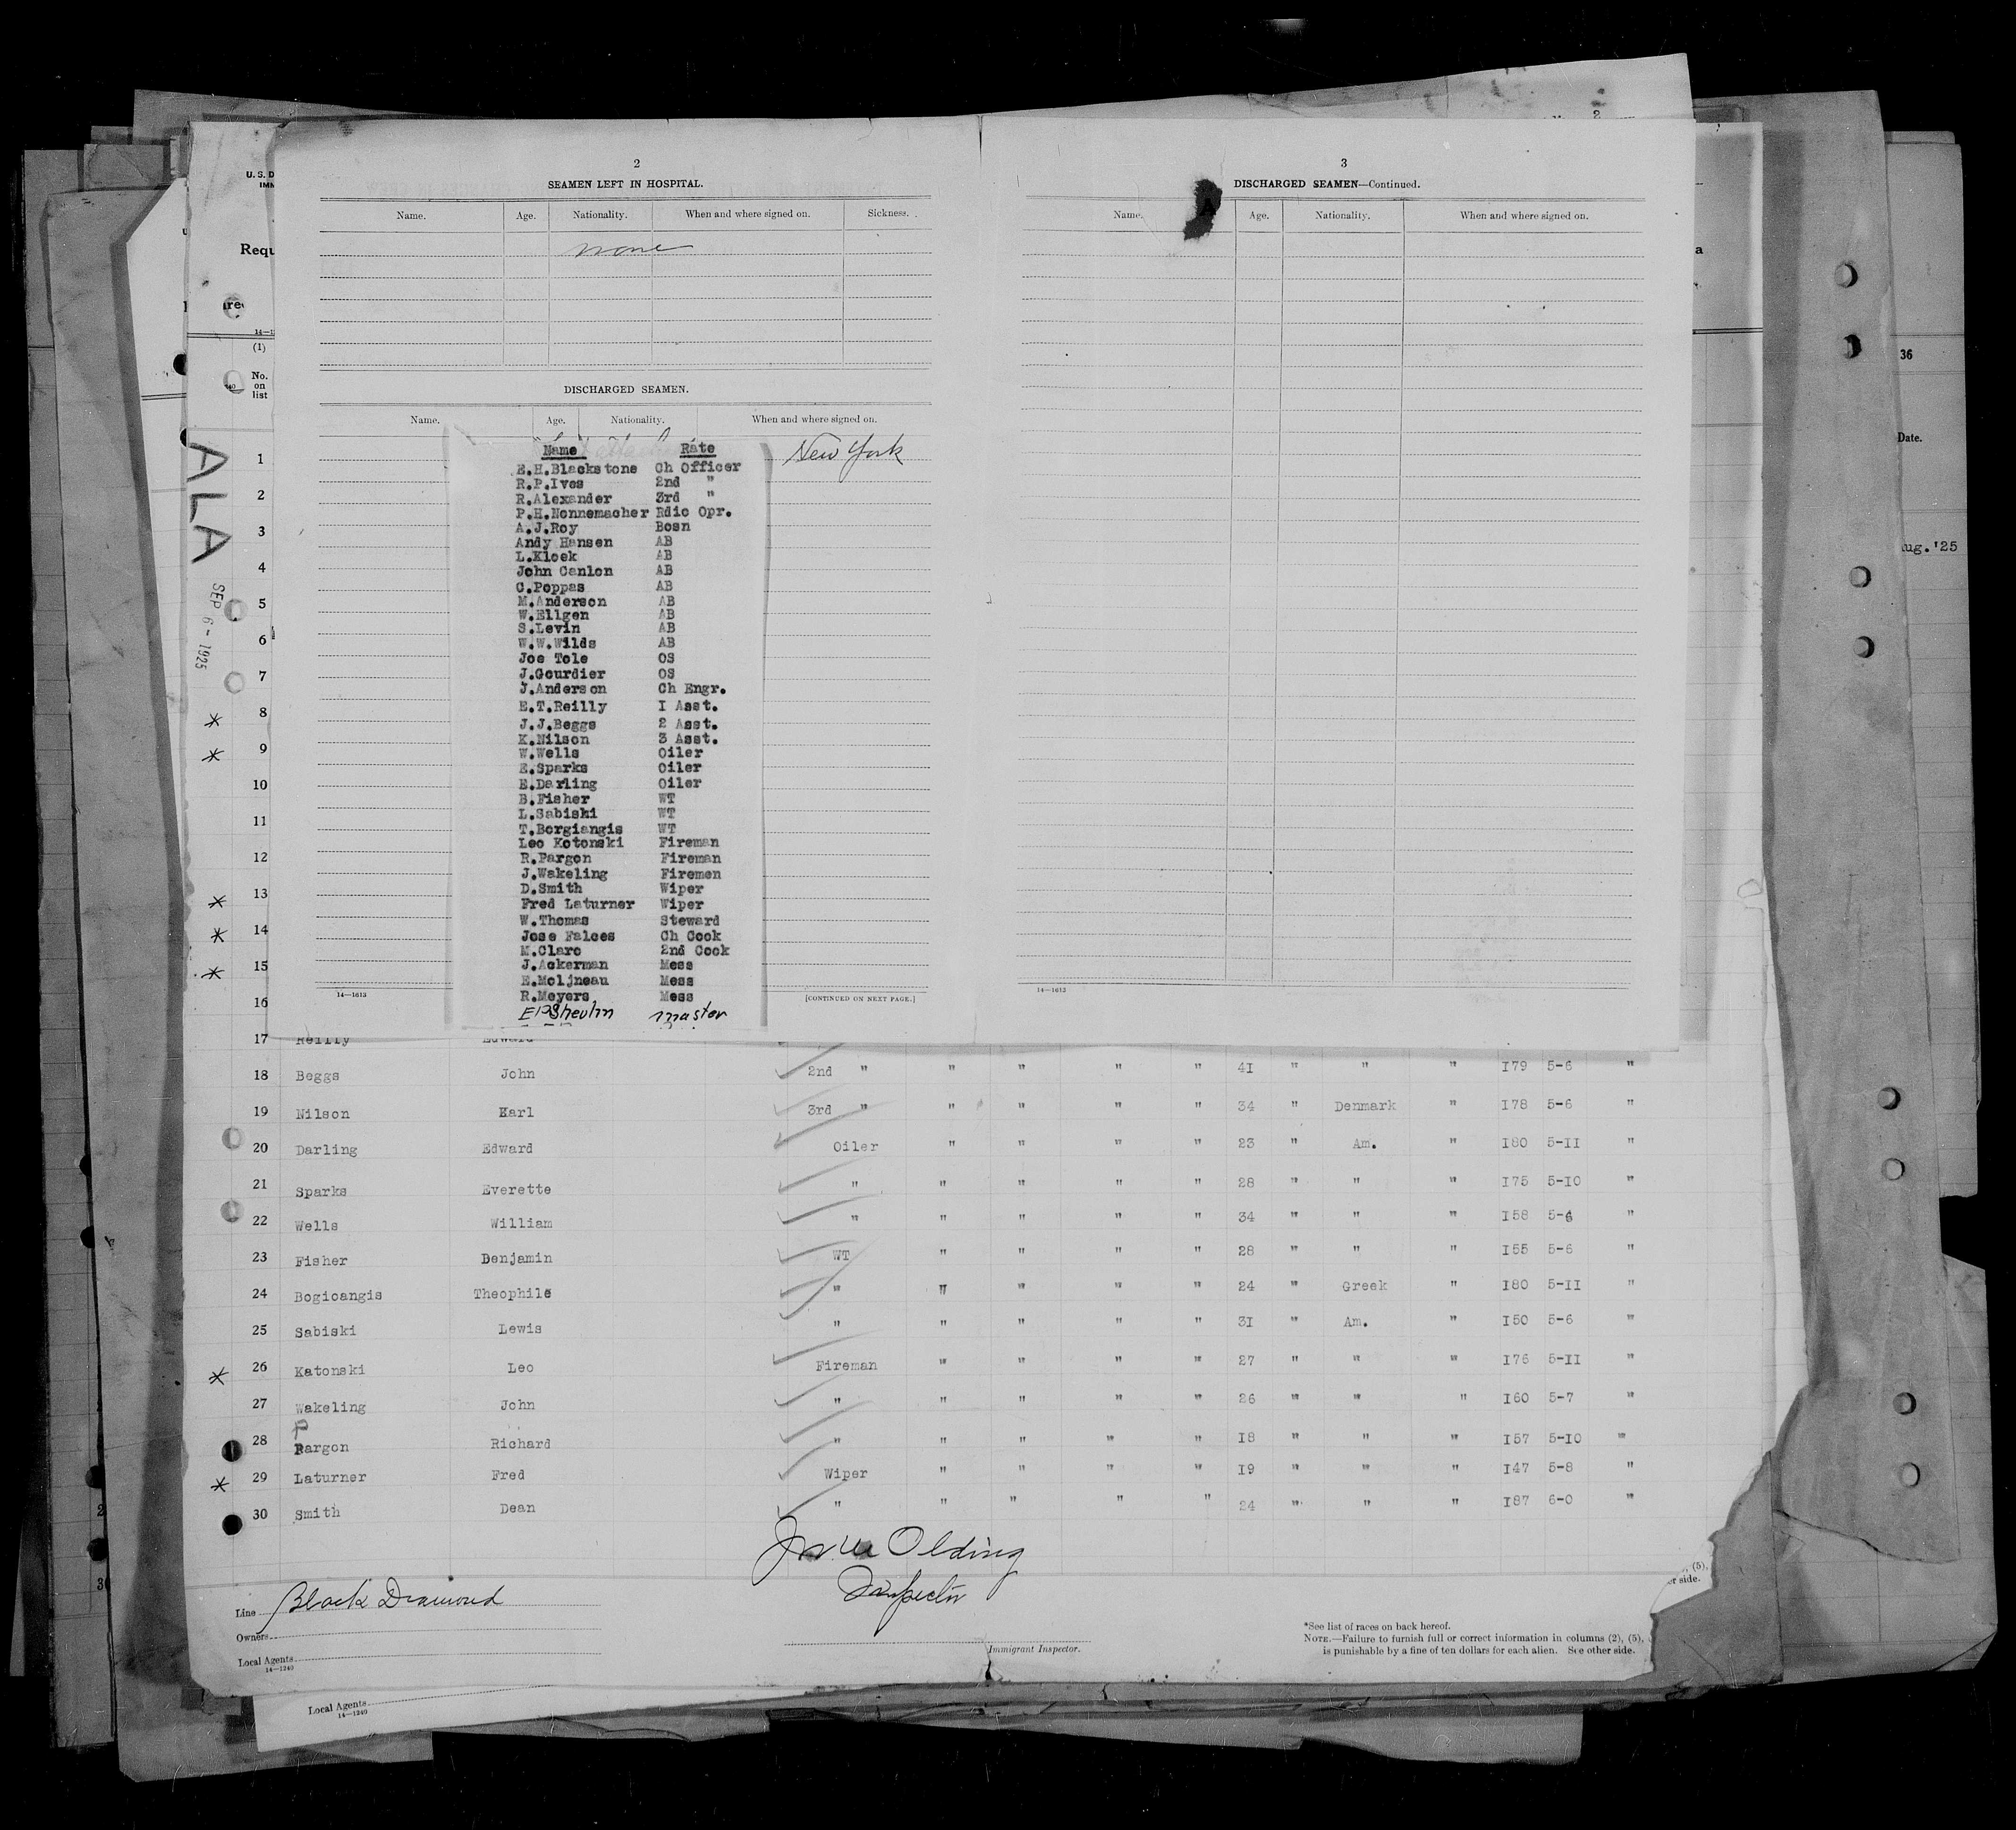 2
SEAMEN LEFT IN HOSPITAL.
Name. Age. Nationality. When and where signed on. Sickness.
none
DISCHARGED SEAMEN.
Name. Age. Nationality. When and where signed on.
New York
Name Rate
E.H.Blackstone Ch Officer
R.P.Ives 2nd "
R.Alexander 3rd "
P.H.Nonnemacher Rdio Opr.
A.J.Roy Bosn
Andy Hansen AB
L.Kloek AB
John Canlon AB
C.Poppas AB
M.Anderson AB
W.Ellgen AB
S.Levin AB
W.W.Wilds AB
Joe Tole OS
J.Gourdier OS
J.Anderson Ch Engr.
E.T.Reilly I Asst.
J.J.Beggs 2 Asst.
K.Nilson 3 Asst.
W.Wells Oiler
E.Sparks Oiler
E.Darling Oiler
B.Fisher WT
L.Sabiski WT
T.Borgiangis WT
Leo Kotonski Fireman
R.Pargon Fireman
J.Wakeling Firemen
D.Smith Wiper
Fred Laturner Wiper
W.Thomas Steward
Jose Falces Ch Cook
M.Claro 2nd Cook
J.Ackerman Mess
E.Moljneau Mess
R.Meyers Mess
master
14—1613
[CONTINUED ON NEXT PAGE.]
3
DISCHARGED SEAMEN—Continued.
Name. Age. Nationality. When and where signed on.
14—1613
2
36
Date.
ug. '25
U. S. D
IMM
Requ
a
14—1
(1)
No.
on
list
ALA
SEP 6 - 1925
1
2
3
4
5
6
7
* 8
* 9
10
11
12
* 13
* 14
* 15
16
17 Reilly Edward
18 Beggs John 2nd " " " " " 41 " " " I79 5-6 "
19 Nilson Karl 3rd " " " " " 34 " Denmark " I78 5-6 "
20 Darling Edward Oiler " " " " 23 " Am. " I80 5-II "
21 Sparks Everette " " " " " 28 " " " I75 5-IO "
22 Wells William " " " " " 34 " " " I58 5-6 "
23 Fisher Benjamin WT " " " " 28 " " " I55 5-6 "
24 Bogioangis Theophile " " " " " 24 " Greek " I80 5-II "
25 Sabiski Lewis " " " " " 3I " Am. " I50 5-6 "
* 26 Katonski Leo Fireman " " " " 27 " " " I76 5-II "
27 Wakeling John " " " " " 26 " " " I60 5-7 "
28 Pargon Richard " " " " " I8 " " " I57 5-IO "
* 29 Laturner Fred Wiper " " " " I9 " " " I47 5-8 "
30 Smith Dean " " " " " 24 " " " I87 6-0 "
Olding
Inspector
Line Black Diamond
Owners
Local Agents
14—1240
Immigrant Inspector.
(5),
er side.
*See list of races on back hereof.
NOTE.—Failure to furnish full or correct information in columns (2), (5),
is punishable by a fine of ten dollars for each alien. See other side.
Local Agents
14—1240